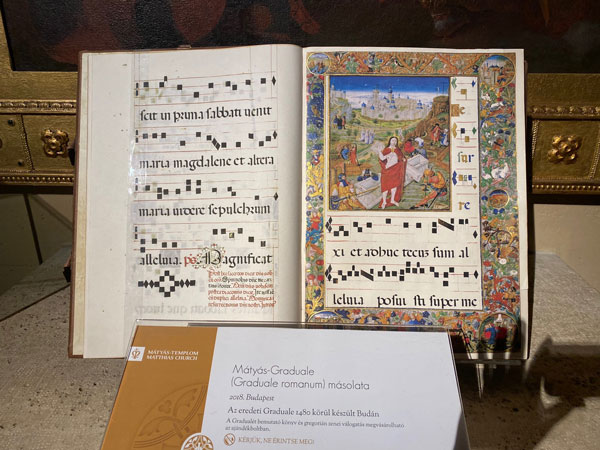 scit in prima sabbati venit
maria magdalene et altera
maria videre sepulchrum
alleluia. ps. Magnificat
Re
sur
re
xi et adhuc tecus sum al
leluia posui sti super me
MÁTYÁS-TEMPLOM
MATTHIAS CHURCH
Mátyás-Graduale
(Graduale romanum) másolata
2018. Budapest
Az eredeti Graduale 1480 körül készült Budán
A Graduálét bemutató könyv és gregorián zenei válogatás megvásárolható
az ajándékboltban.
KÉRJÜK, NE ÉRINTSE MEG!